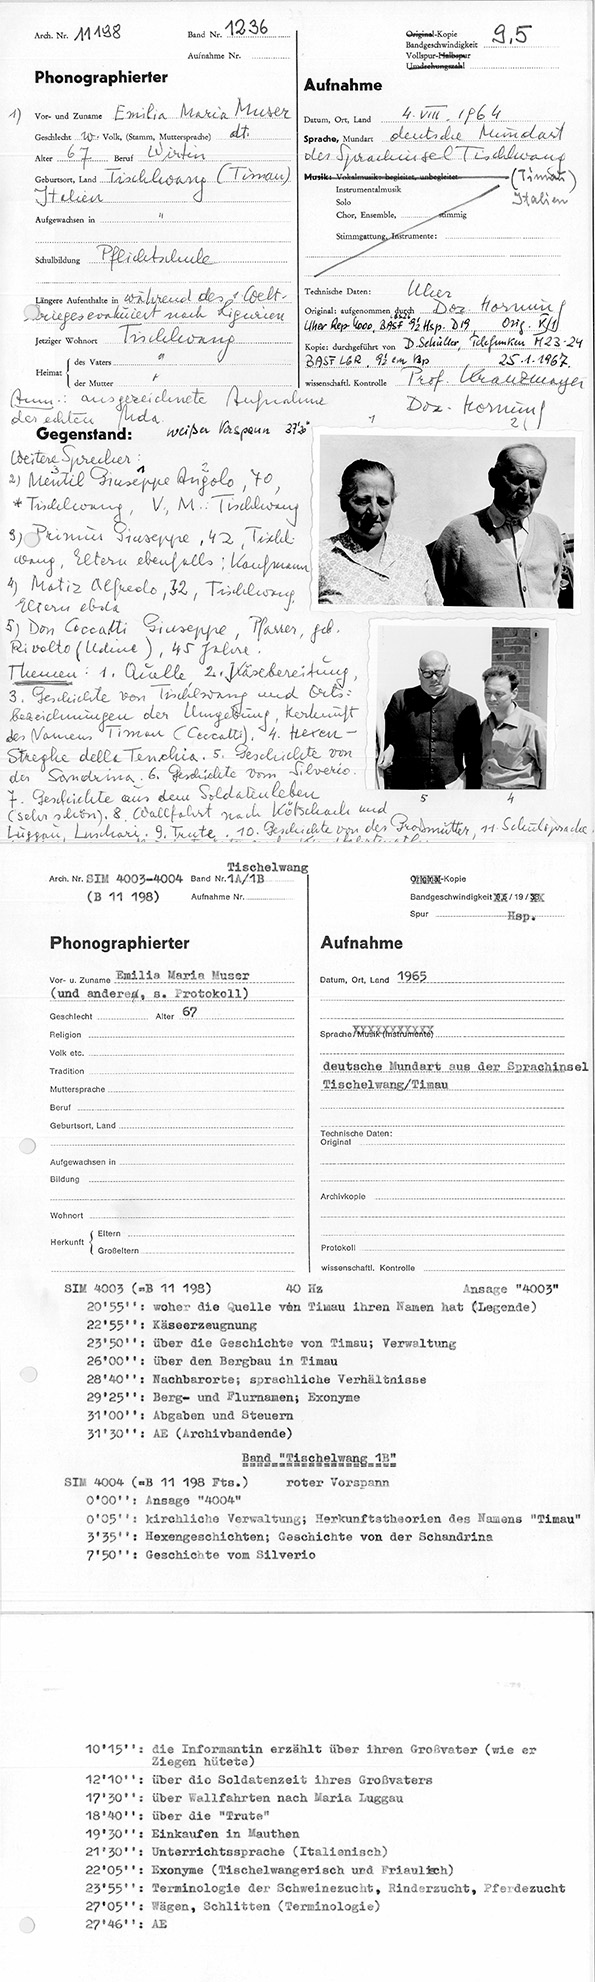 Arch. Nr. 11198 Band Nr. 1236
Aufnahme Nr.
Phonographierter
1) Vor- und Zuname Emilia Maria Muser
Geschlecht w. Volk, (Stamm, Muttersprache) dt.
Alter 67 Beruf Wirtin
Geburtsort, Land Tischlwang (Timau)
Italien
Aufgewachsen in "
Schulbildung Pflichtschule
Längere Aufenthalte in während des 1. Welt-
krieges evakuiert nach Ligurien
Jetziger Wohnort Tischlwang
Heimat des Vaters "
der Mutter "
Anm.: ausgezeichnete Aufnahme
der echten Mda.
Original-Kopie
Bandgeschwindigkeit 9,5
Vollspur-Halbspur
Umdrehungszahl
Aufnahme
Datum, Ort, Land 4. VIII. 1964
Sprache, Mundart deutsche Mundart
der Sprachinsel Tischlwang
(Timau)
Italien
Musik: Vokalmusik: begleitet, unbegleitet
Instrumentalmusik
Solo
Chor, Ensemble, stimmig
Stimmgattung, Instrumente:
Technische Daten: Uher
Original: aufgenommen durch Doz. Hornung
Uher Rep. 4000, BASF 9½ Hsp. D19, Orig. V/1
Kopie: durchgeführt von D. Schüller, Telefunken M23-24
BASF LGR, 9½ cm Vsp 25.1.1967.
wissenschaftl. Kontrolle Prof. Kranzmayer
Doz. Hornung
Gegenstand: weißer Vorspann 37'30"
1 2
Weitere Sprecher:
2) Mentil Giuseppe Angolo, 70,
* Tischlwang, V., M.: Tischlwang
3) Primus Giuseppe, 42, Tischl-
wang, Eltern ebenfalls; Kaufmann
4) Matiz Alfredo, 32, Tischlwang
Eltern ebda
5) Don Coccatti Giuseppe, Pfarrer, geb.
Rivolto (Udine), 45 Jahre.
Themen: 1. Quelle 2. Käsebereitung,
3. Geschichte von Tischlwang und Orts-
bezeichnungen der Umgebung, Herkunft
des Namens Timau (Coccatti), 4. Hexen-
Streghe della Tenchia. 5. Geschichte von
der Sandrina. 6. Geschichte vom Silverio.
7. Geschichte aus dem Soldatenleben
(sehr schön). 8. Wallfahrt nach Kötschach und
Luggau, Luschari. 9. Trute. 10. Geschichte von der Großmutter, 11. Schulsprache.
5 4
Tischelwang
Arch. Nr. SIM 4003-4004 Band Nr. 1A/1B
(B 11 198) Aufnahme Nr.
-Kopie
Bandgeschwindigkeit XX / 19 / XX
Spur Hsp.
Phonographierter
Vor- u. Zuname Emilia Maria Muser
(und andere, s. Protokoll)
Geschlecht Alter 67
Religion
Volk etc.
Tradition
Muttersprache
Beruf
Geburtsort, Land
Aufgewachsen in
Bildung
Wohnort
Herkunft Eltern
Großeltern
Aufnahme
Datum, Ort, Land 1965
Sprache/Musik (Instrumente)
deutsche Mundart aus der Sprachinsel
Tischelwang/Timau
Technische Daten:
Original
Archivkopie
Protokoll
wissenschaftl. Kontrolle
SIM 4003 (=B 11 198) 40 Hz Ansage "4003"
20'55'': woher die Quelle von Timau ihren Namen hat (Legende)
22'55'': Käseerzeugnung
23'50'': über die Geschichte von Timau; Verwaltung
26'00'': über den Bergbau in Timau
28'40'': Nachbarorte; sprachliche Verhältnisse
29'25'': Berg- und Flurnamen; Exonyme
31'00'': Abgaben und Steuern
31'30'': AE (Archivbandende)
Band "Tischelwang 1B"
SIM 4004 (=B 11 198 Fts.) roter Vorspann
0'00'': Ansage "4004"
0'05'': kirchliche Verwaltung; Herkunftstheorien des Namens "Timau"
3'35'': Hexengeschichten; Geschichte von der Schandrina
7'50'': Geschichte vom Silverio
10'15'': die Informantin erzählt über ihren Großvater (wie er
Ziegen hütete)
12'10'': über die Soldatenzeit ihres Großvaters
17'30'': über Wallfahrten nach Maria Luggau
18'40'': über die "Trute"
19'30'': Einkaufen in Mauthen
21'30'': Unterrichtssprache (Italienisch)
22'05'': Exonyme (Tischelwangerisch und Friaulisch)
23'55'': Terminologie der Schweinezucht, Rinderzucht, Pferdezucht
27'05'': Wägen, Schlitten (Terminologie)
27'46'': AE